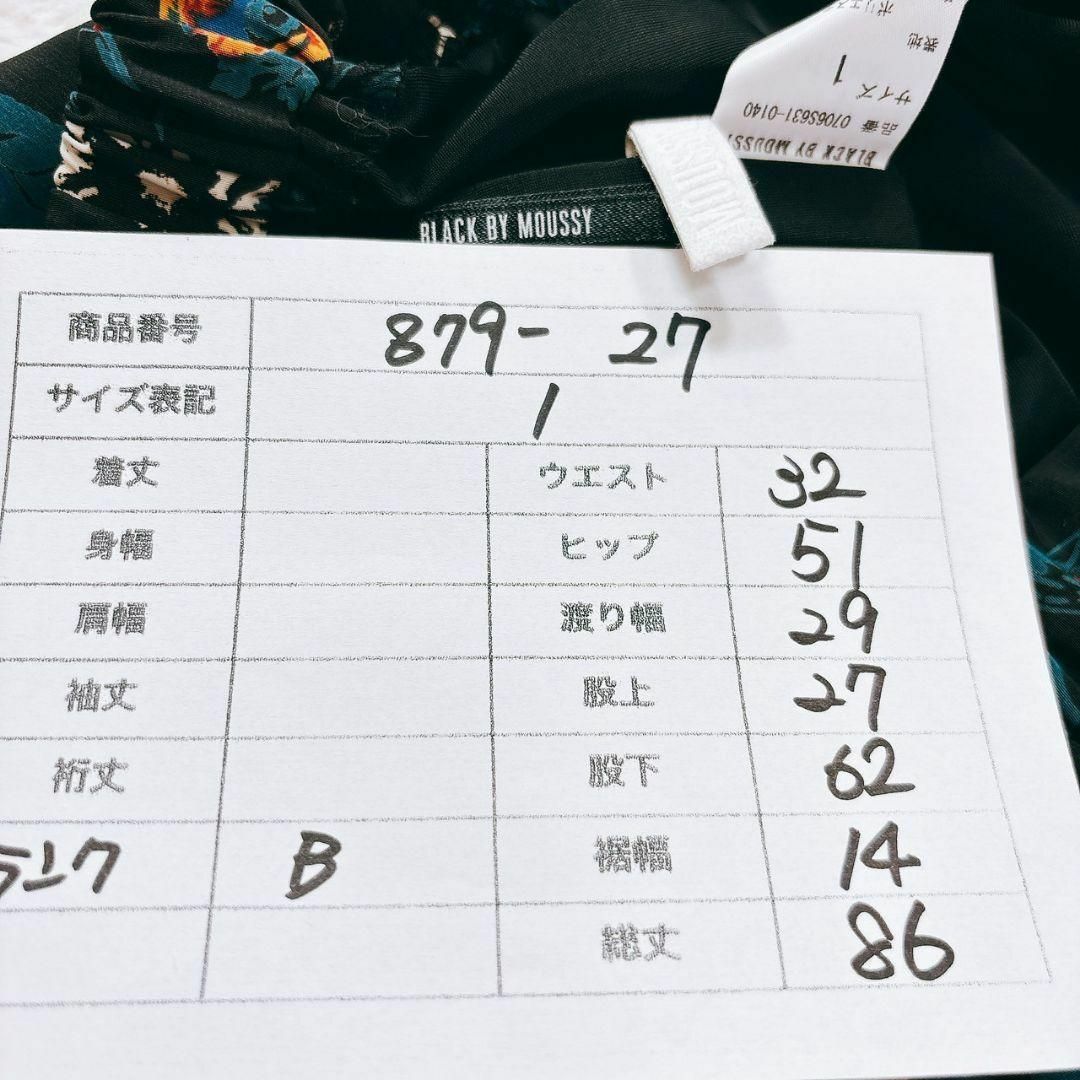 ポリエス
表地
サイズ 1
品番 0706S631-0140
BLACK BY MOUSSY
BLACK BY MOUSSY
商品番号 879- 27
サイズ表記 1
着丈 ウエスト 32
身幅 ヒップ 51
肩幅 渡り幅 29
袖丈 股上 27
裄丈 股下 62
ランク B 裾幅 14
総丈 86